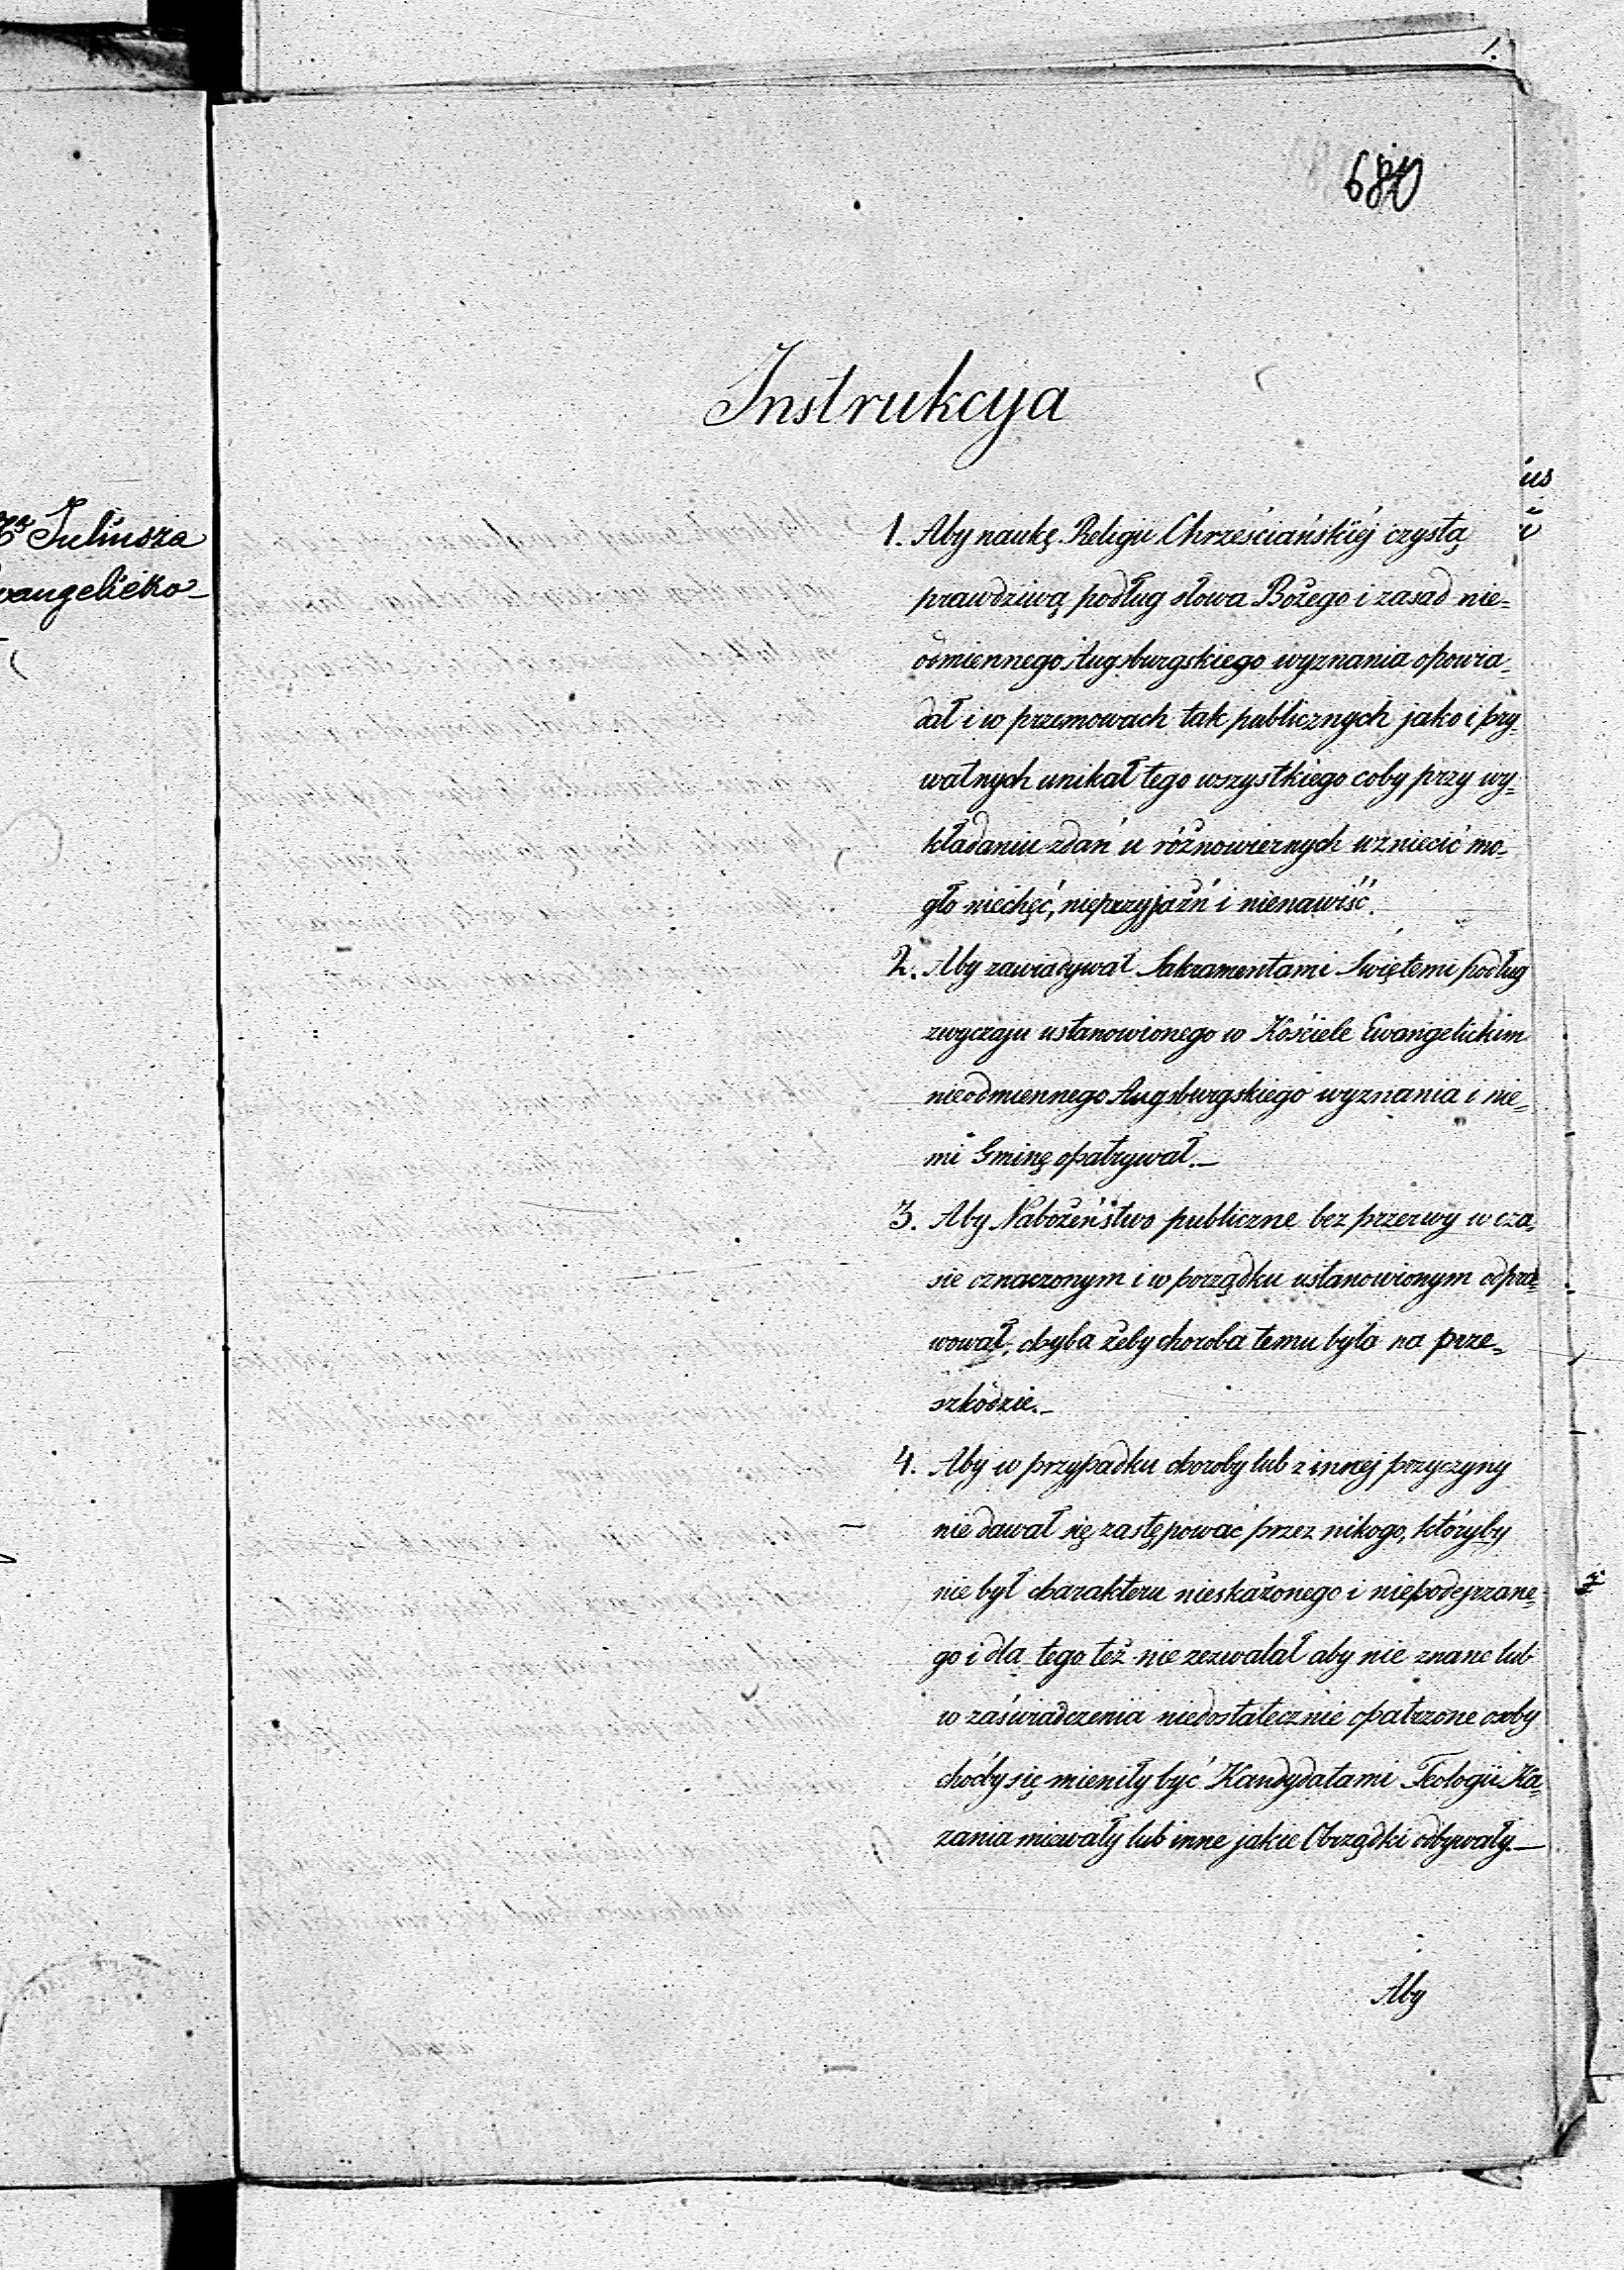 1.
680
Juliusza
wangelicko-
Instrukcya
us
1. Aby naukę Religii Chrześciańskiéj czystą
prawdziwą podług słowa Bożego i zasad nie=
odmiennego Augsburgskiego wyznania opowia=
dał i w przemowach tak publicznych jako i pry=
watnych unikał tego wszystkiego coby przy wy=
kładaniu zdań u różnowiernych wzniecić mo=
gło niechęć, nieprzyjaźń i nienawiść.
2. Aby zawiadywał Sakramentami Swiętemi podług
zwyczaju ustanowionego w Kościele Ewangelickim
nieodmiennego Augsburgskiego wyznania i nie=
mi Gminę opatrywał.—
3. Aby Nabożeństwo publiczne bez przerwy w cza=
sie oznaczonym i w porządku ustanowionym odpra=
wował, chyba żeby choroba temu była na prze=
szkodzie.—
4. Aby w przypadku choroby lub z innej przyczyny
nie dawał się zastępować przez nikogo, któryby
nie był charakteru nieskażonego i niepodejrzane=
go i dla tego też nie zezwalał aby nie znane lub
w zaświadczenia niedostatecznie opatrzone osoby
choćby się mieniły być Kandydatami Teologii Ka=
zania miewały lub inne jakie Obrządki odbywały.—
Aby